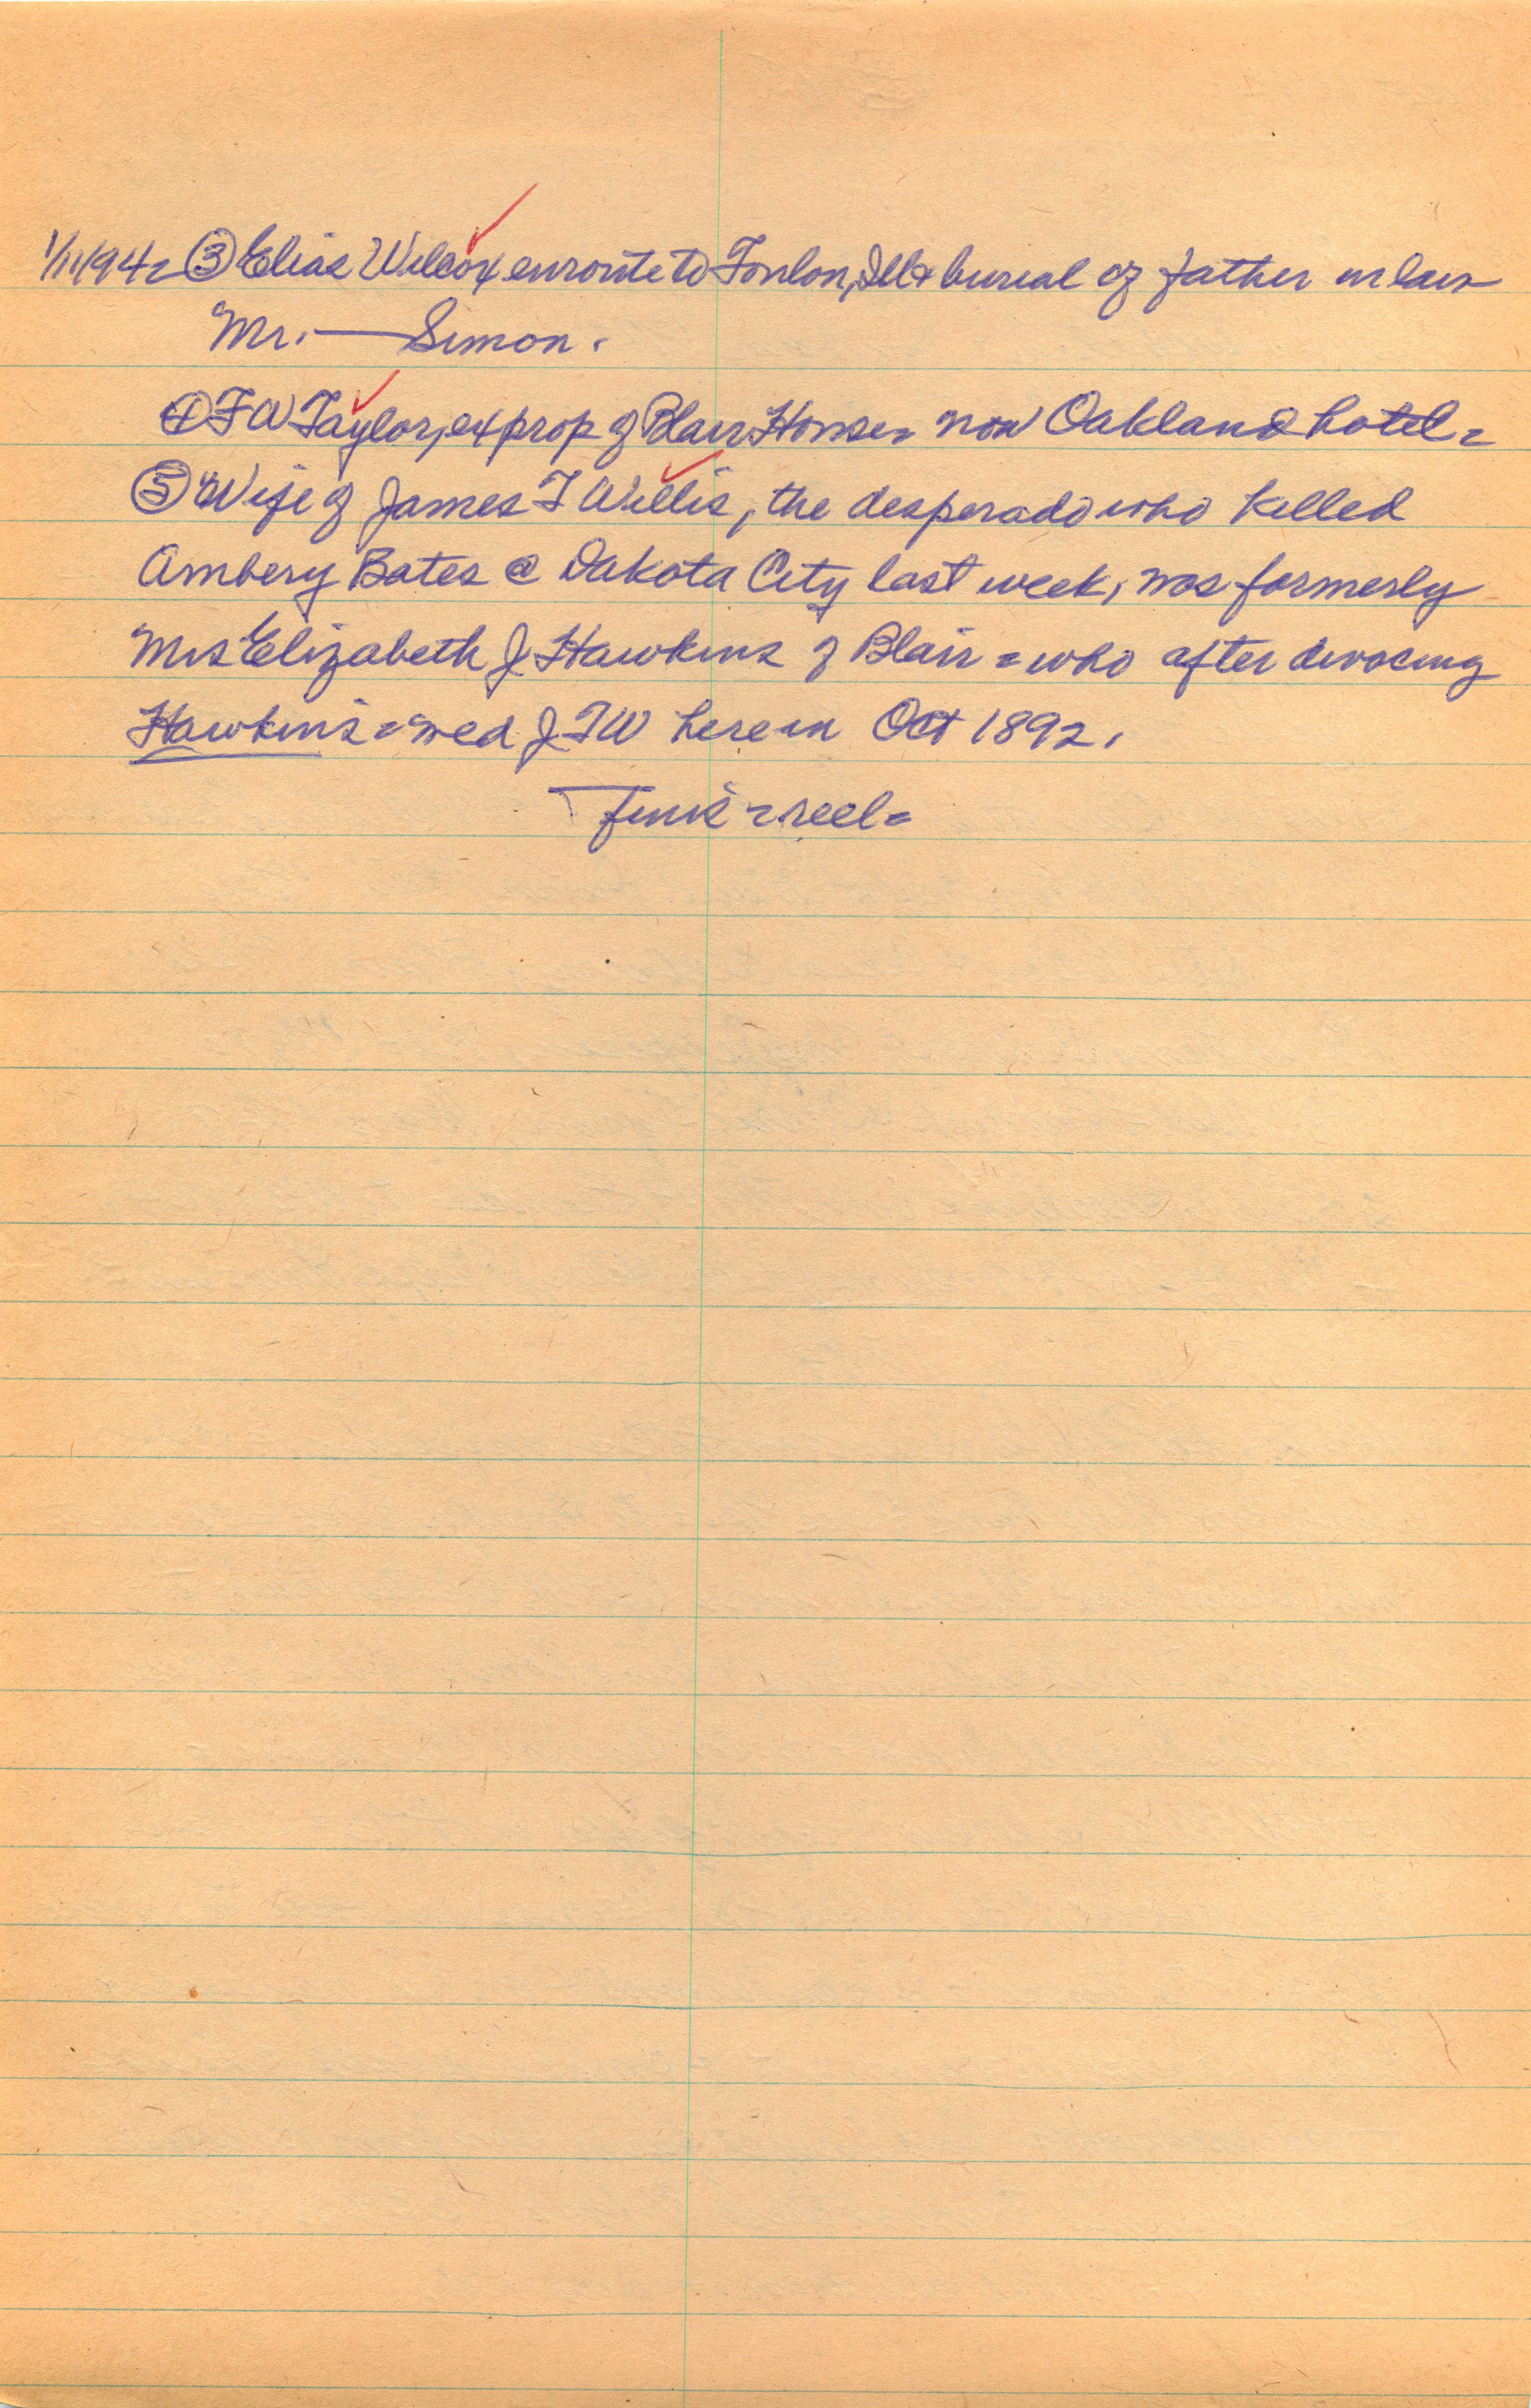 1/11/1894= ③ Elias Wilcox enroute to Toulon, Ill & burial of father in law
Mr. — Simon.
④ F W Taylor, ex prop of Blair House= now Oakland hotel=
⑤ Wife of James T Willis, the desperado who killed
Ambery Bates @ Dakota City last week, was formerly
Mrs Elizabeth J Hawkins of Blair = who after divocing
Hawkins = wed J T W here in Oct 1892.
reel=